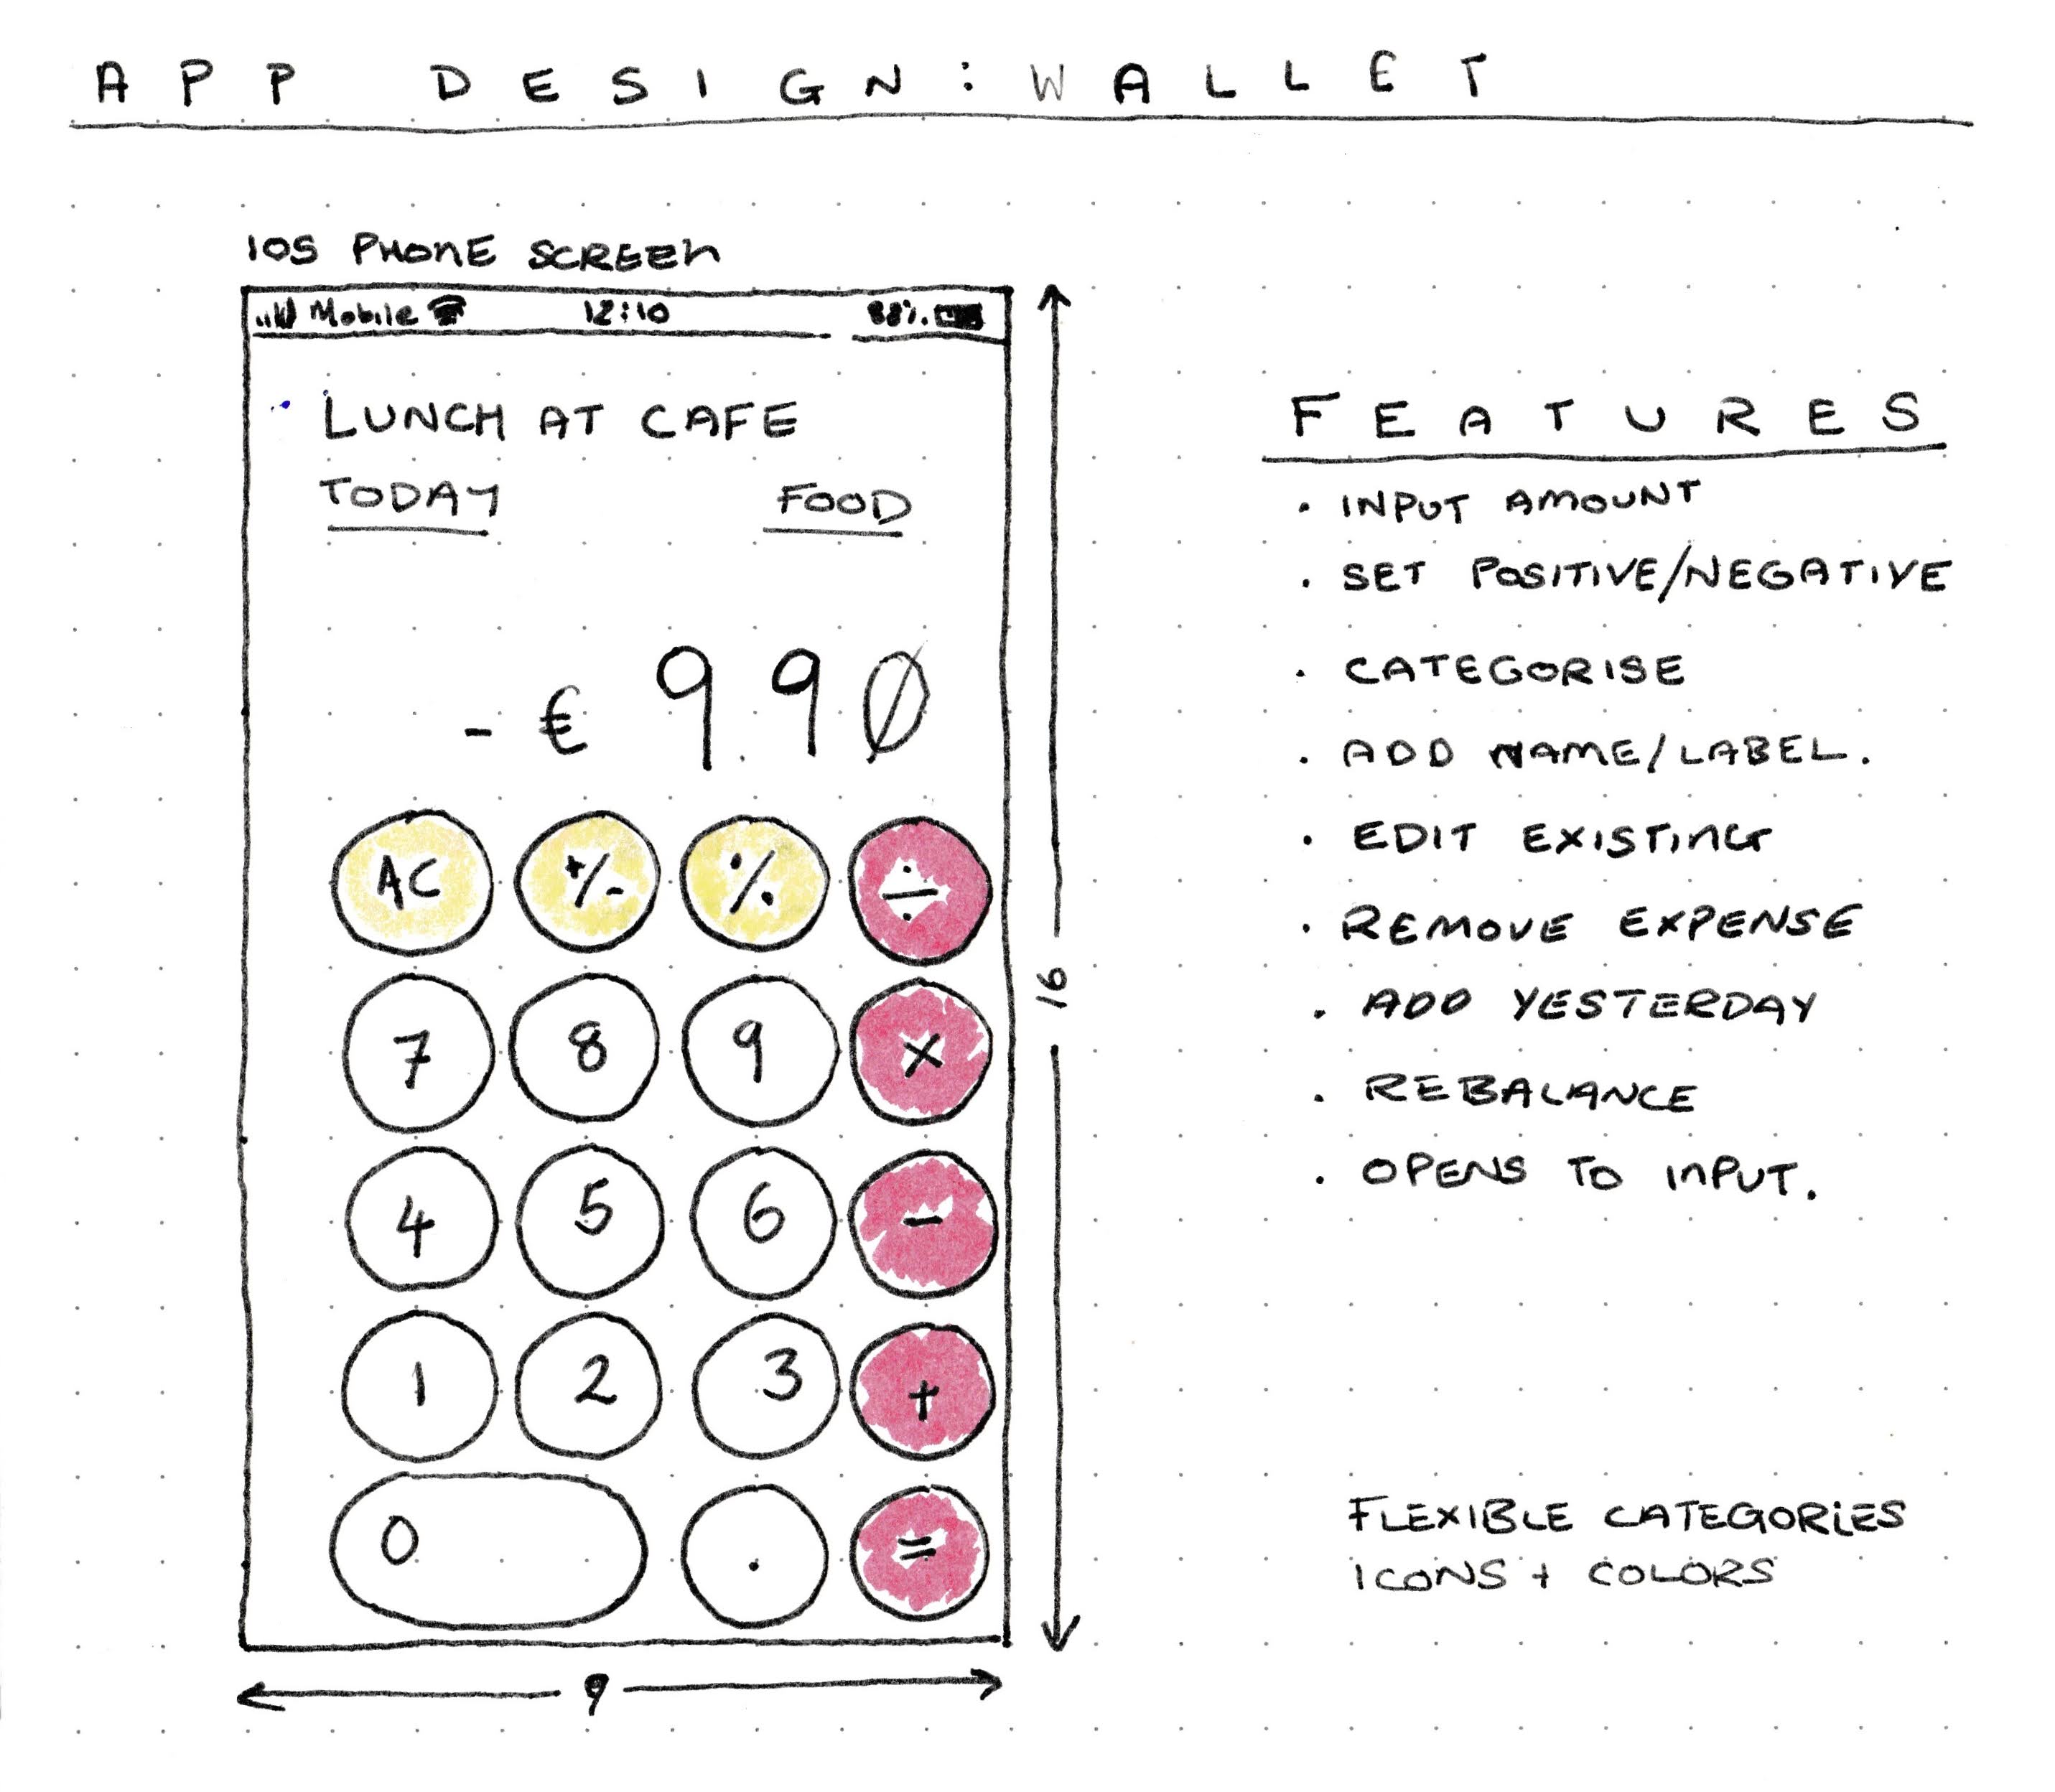 APP DESIGN: WALLET
IOS PHONE SCREEN
Mobile 12:10 88%
LUNCH AT CAFE
TODAY FOOD
- € 9.90
AC +/- % ÷
7 8 9 ×
4 5 6 -
1 2 3 +
0 . =
16
9
FEATURES
· INPUT AMOUNT
· SET POSITIVE/NEGATIVE
· CATEGORISE
· ADD NAME/LABEL.
· EDIT EXISTING
· REMOVE EXPENSE
· ADD YESTERDAY
· REBALANCE
· OPENS TO INPUT.
FLEXIBLE CATEGORIES
ICONS + COLORS